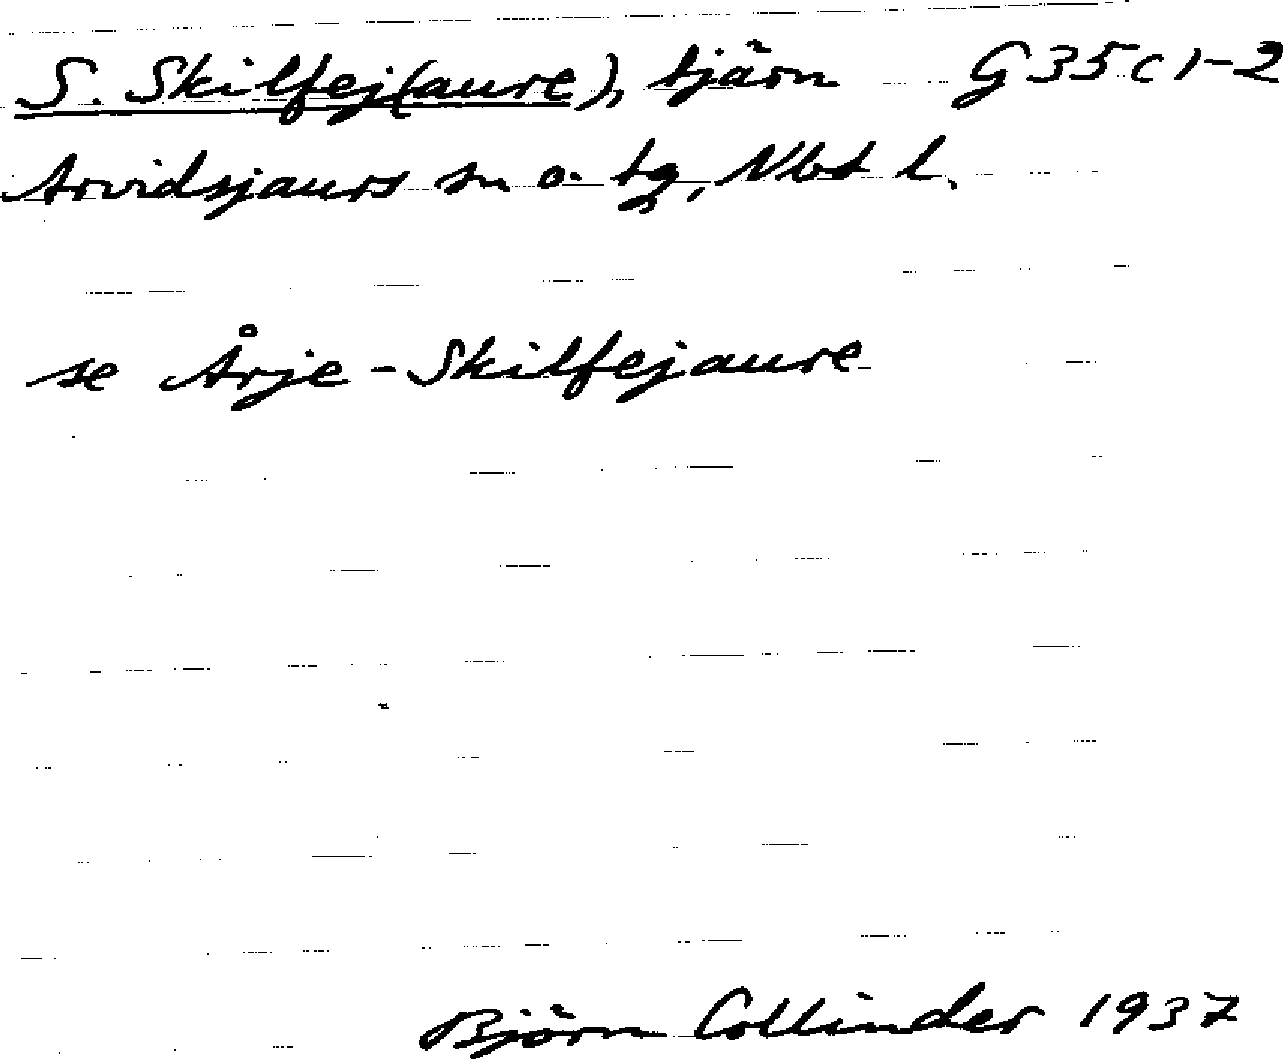 S. Skilfej(aure), tjärn G 35 c 1-2
Arvidsjaurs sn o. tg, Nbt l.
se Årje-Skilfejaure
Björn Collinder 1937